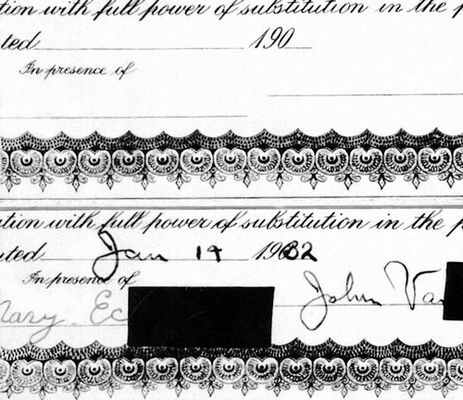 tion with full power of substitution in the p
ted 190
In presence of
ution with full power of substitution in the p
ted Jan
In presence of
Mary. Ec John Va